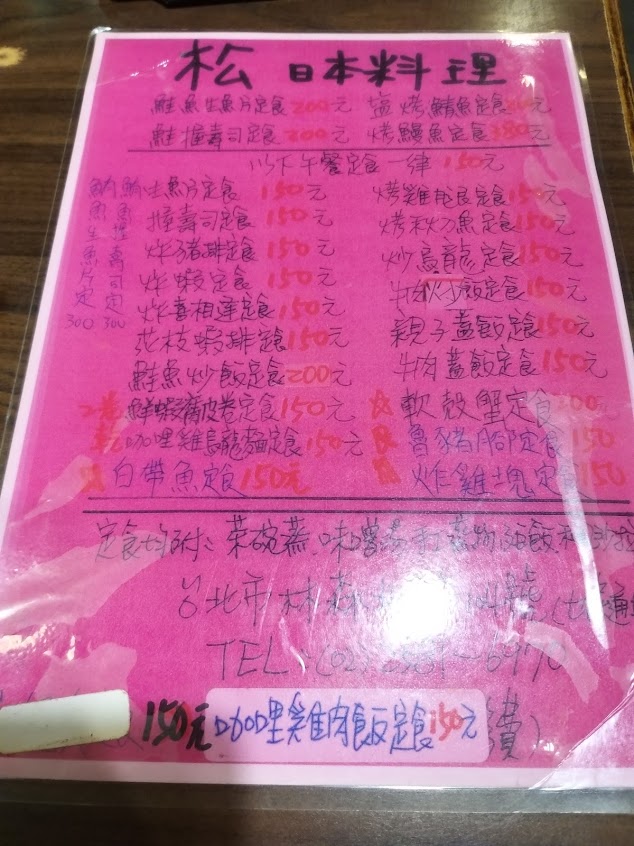 松 日本料理
鮭魚生魚片定食200元 塩烤鯖魚定食 元
鮭握壽司定食200元 烤鰻魚定食380元
以下午餐定食一律150元
鮪魚生魚片定300
鮪魚握壽司定300
生魚片定食150元 烤雞腿定食150元
握壽司定食150元 烤秋刀魚定食150元
炸豬排定食150元 炒烏龍定食150元
炸蝦定食150元 牛肉炒飯定食150元
炸喜相逢定食150元 親子蓋飯定食150元
花枝蝦排定食150元 牛肉蓋飯定食150元
鮭魚炒飯定食200元 軟殼蟹定食200元
鮮蝦腐皮卷定食150元 魯豬腳定食150
咖哩雞烏龍麵定食150元 炸雞塊定食150
白帶魚定食150元
定食均附: 茶碗蒸.味噌湯.
台北市林森北路
TEL:(02)
150元 咖哩雞肉飯定食150元 費)